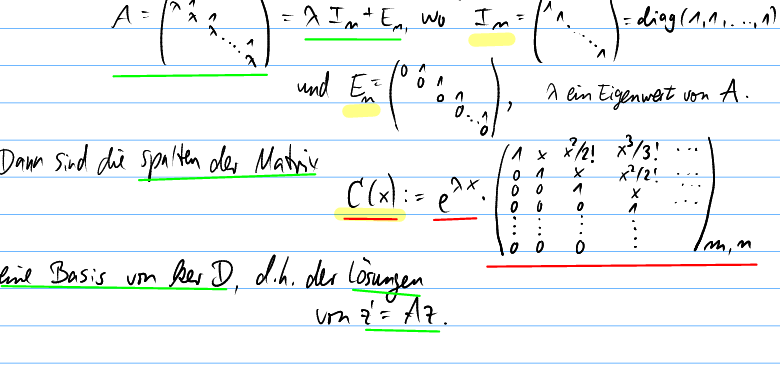 A = (λ 1 λ 1 λ 1 ⋱ 1 λ) = λ I_n + E_n, wo I_n = (1 1 ⋱ 1) = diag(1,1,...,1)
und E_n = (0 1 0 1 0 1 0 ⋱ 1 0), λ ein Eigenwert von A.
Dann sind die Spalten der Matrix
C(x) := e^{λx} · (1 x x²/2! x³/3! ...
0 1 x x²/2! ...
0 0 1 x ...
0 0 0 1
⋮ ⋮ ⋮ ⋮
0 0 0 ⋮)_{n,n}
eine Basis von ker D, d.h. der Lösungen
von z' = Az.